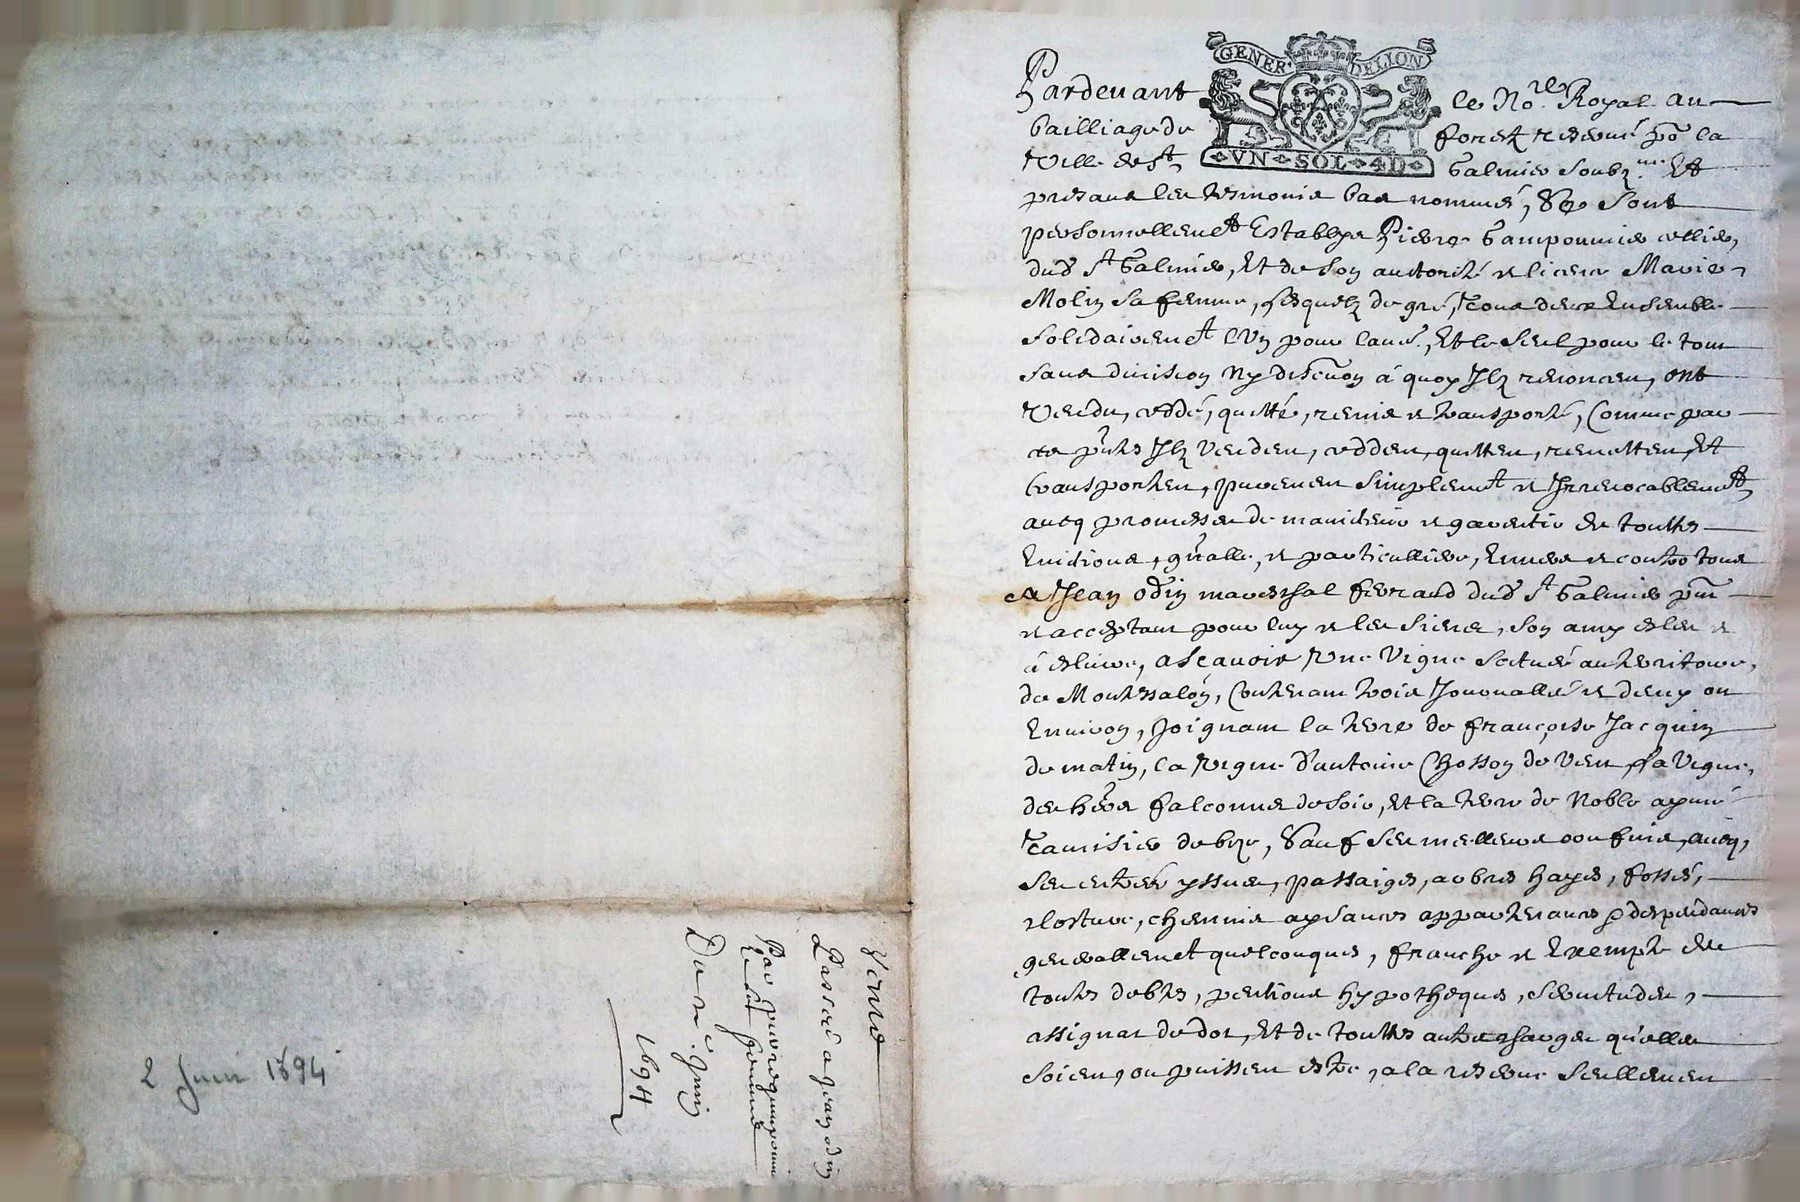 GENER. DE LION
VN SOL 4D
Pardeuant le No.re Royal au
bailliage de forest reserué po la
Ville de St Galmier soubz.né Et
presans les tesmoins bas nommés, Se sont
personnellemet Establys Pierre Gamponnier cellier,
dud St Galmier, Et de son authorité et licence Marie
Molin sa femme, lesquelz de gré, tous deux Ensemble
solidairemet l'Vn pour l'autre, Et le seul pour le tout
sans diuision ny discution à quoy Ilz renoncent, ont
Vendu, ceddé, quitté, remis et transporté, Comme par
ces pntes Ilz Venden, cedden, quitten, remetten, Et
transporten, purement simplemet et Irreuocablemet
aueq promesse de maintenir et garentir de touttes
Euictions, gnalle, et particulliere, Enuers et contre tous
A Jean Odin mareschal ferrand dud St Galmier pnt
et acceptant pour luy et les siens, son amy esleu et
à eslire, ascauoir Vne Vigne scituée au territoire,
de Montessalon, Contenant trois Journallées et demy ou
Enuiron, Joignant la terre de françoise Jacquin
de matin, la Vigne d'antoine Chosson de Vent, la Vigne,
des hers falconnet de soir, Et la terre de Noble aymé
Camisier de bize, Sauf ses meilleurs confins, aueq,
ses entrées yssues, passaiges, arbres hayes, fossés,
closture, chemins aysances appartenances & despendances
generallemet quelconques, franche et Exempte de
toutes debtes, pentions hypotheques, seruitudes,
assignat de dot, Et de touttes autres charges qu'elles
soient, ou puissent estre, a la reserue seullement
Vente
Passée a Jean odin
Par pierre gamponnier
Et sa femme
Du 2e. Juin
1694
2 Juin 1694